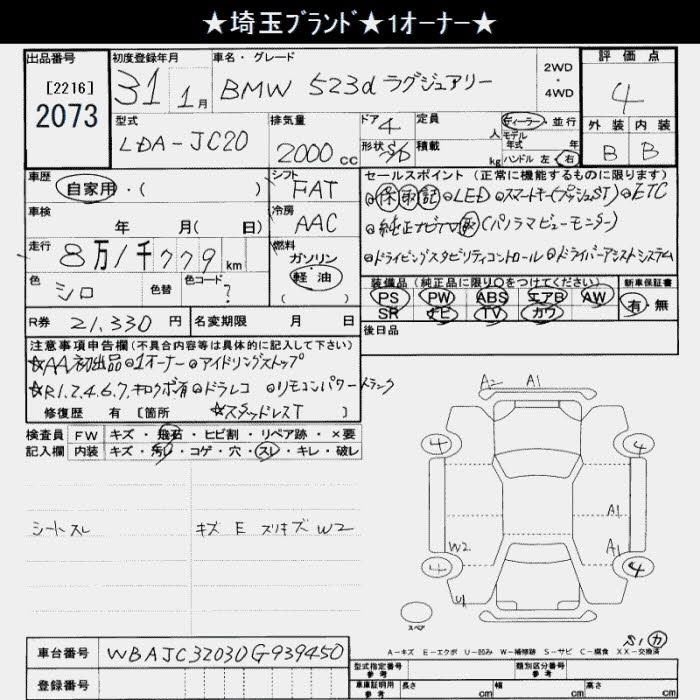 ★埼玉ブランド★1オーナー★
出品番号 初度登録年月 車名・グレード 評価点
[2216] 31 1月 BMW 523d ラグジュアリー 2WD・4WD 4
2073
型式 排気量 ドア 4 定員 人 ディーラー・並行 外装 内装
LDA-JC20 2000cc 形状 S/D 積載 kg モデル年式 年 B B
ハンドル 左・右
車歴 自家用・( ) シフト FAT セールスポイント (正常に機能するものに限ります)
◎保 取 記 ◎LED ◎スマートキー(プッシュST) ◎ETC
車検 年 月( 日) 冷房 AAC ◎純正ナビTV取(パノラマビューモニター)
走行 8万1千779km 燃料 ガソリン 軽油 ◎ドライビングスタビリティコントロール ◎ドライバーアシストシステム
色 シロ 色替 色コード ? 装備品(純正品に限り○をつけてください) 新車保証書
PS PW ABS エアB AW 有・無
SR ナビ TV カワ
R券 21,330円 名変期限 月 日 後日品
注意事項申告欄(不具合内容等は具体的に記入して下さい)
☆AA初出品 ◎1オーナー ◎アイドリングストップ
☆R1.2.4.6.7.キロクボ有 ◎ドラレコ ◎リモコンパワートランク
修復歴 有 [箇所 ☆スタッドレスT ]
検査員 FW キズ・飛石・ヒビ割・リペア跡・×要
記入欄 内装 キズ・汚れ・コゲ・穴・スレ・キレ・破レ
シートスレ キズ E スリキズ W2
A2 A1
4 4
A1
W2 A1
4 4
U1
スペア
S1 カ
A-キズ E-エクボ U-凹み W-補修跡 S-サビ C-腐食 XX-交換済
車台番号 WBAJC32030G939450 型式指定番号 参考 類別区分番号 参考
登録番号 車庫証明用 参考 長さ cm 幅 cm 高さ cm